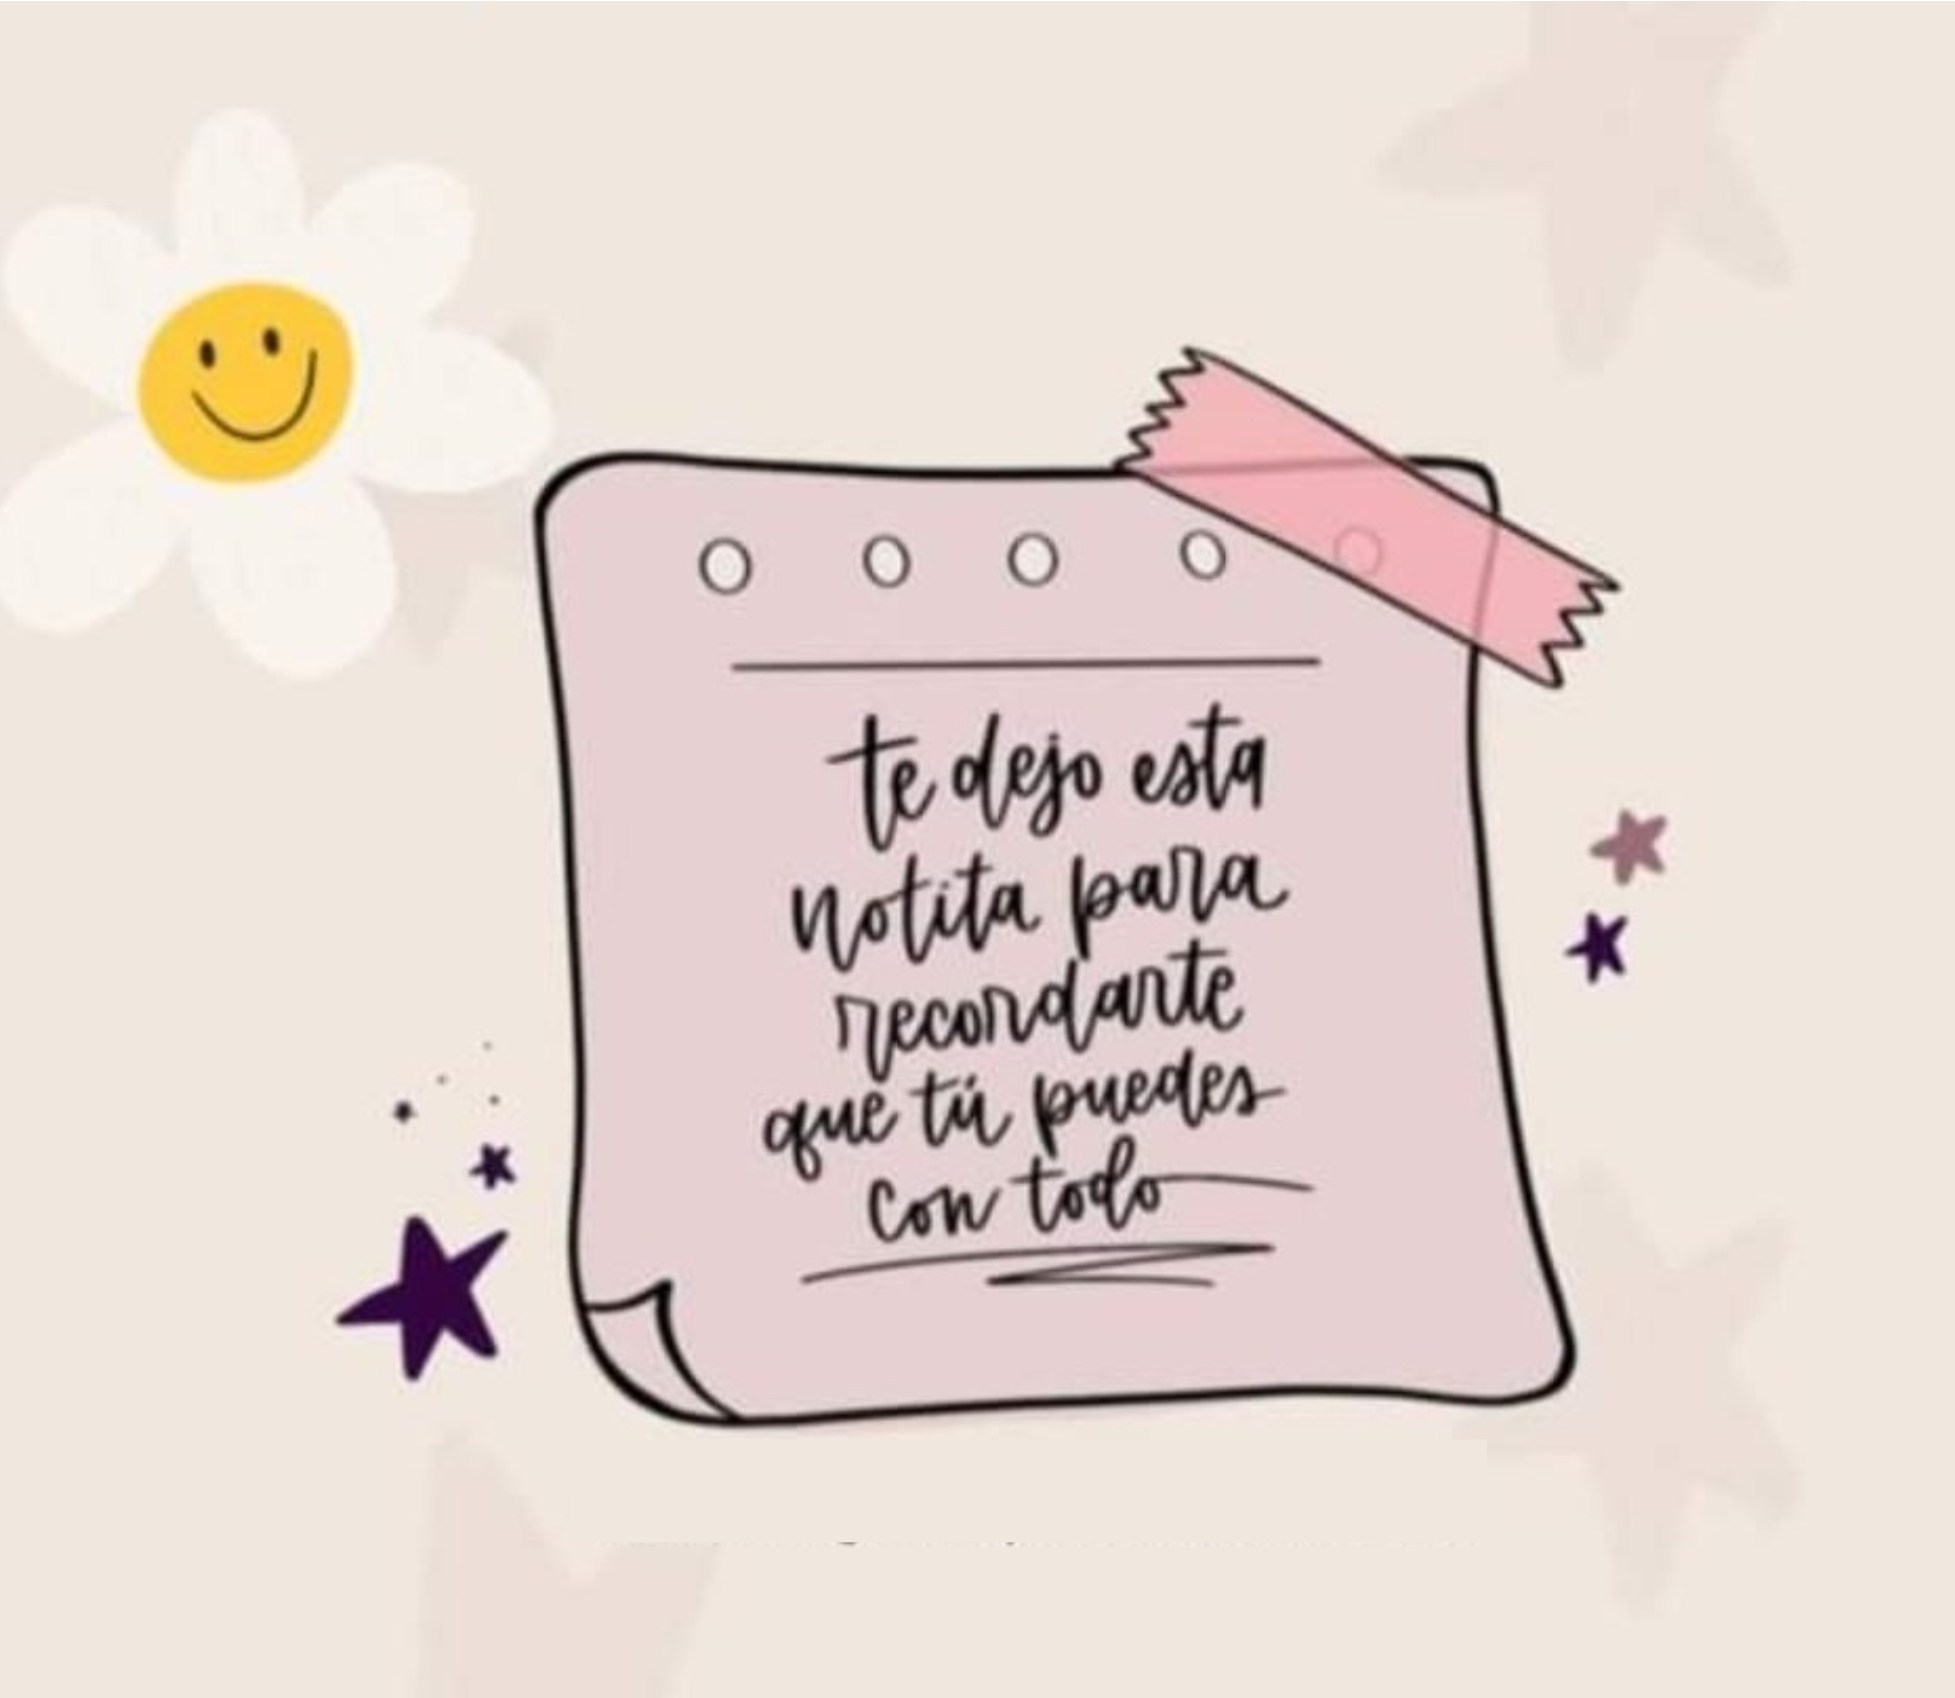 te dejo esta
notita para
recordarte
que tú puedes
con todo